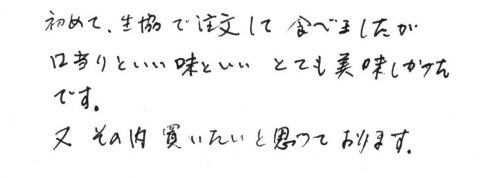 初めて、生協で注文して食べましたが
口当りといい味といいとても美味しかった
です。
又その内買いたいと思っております。